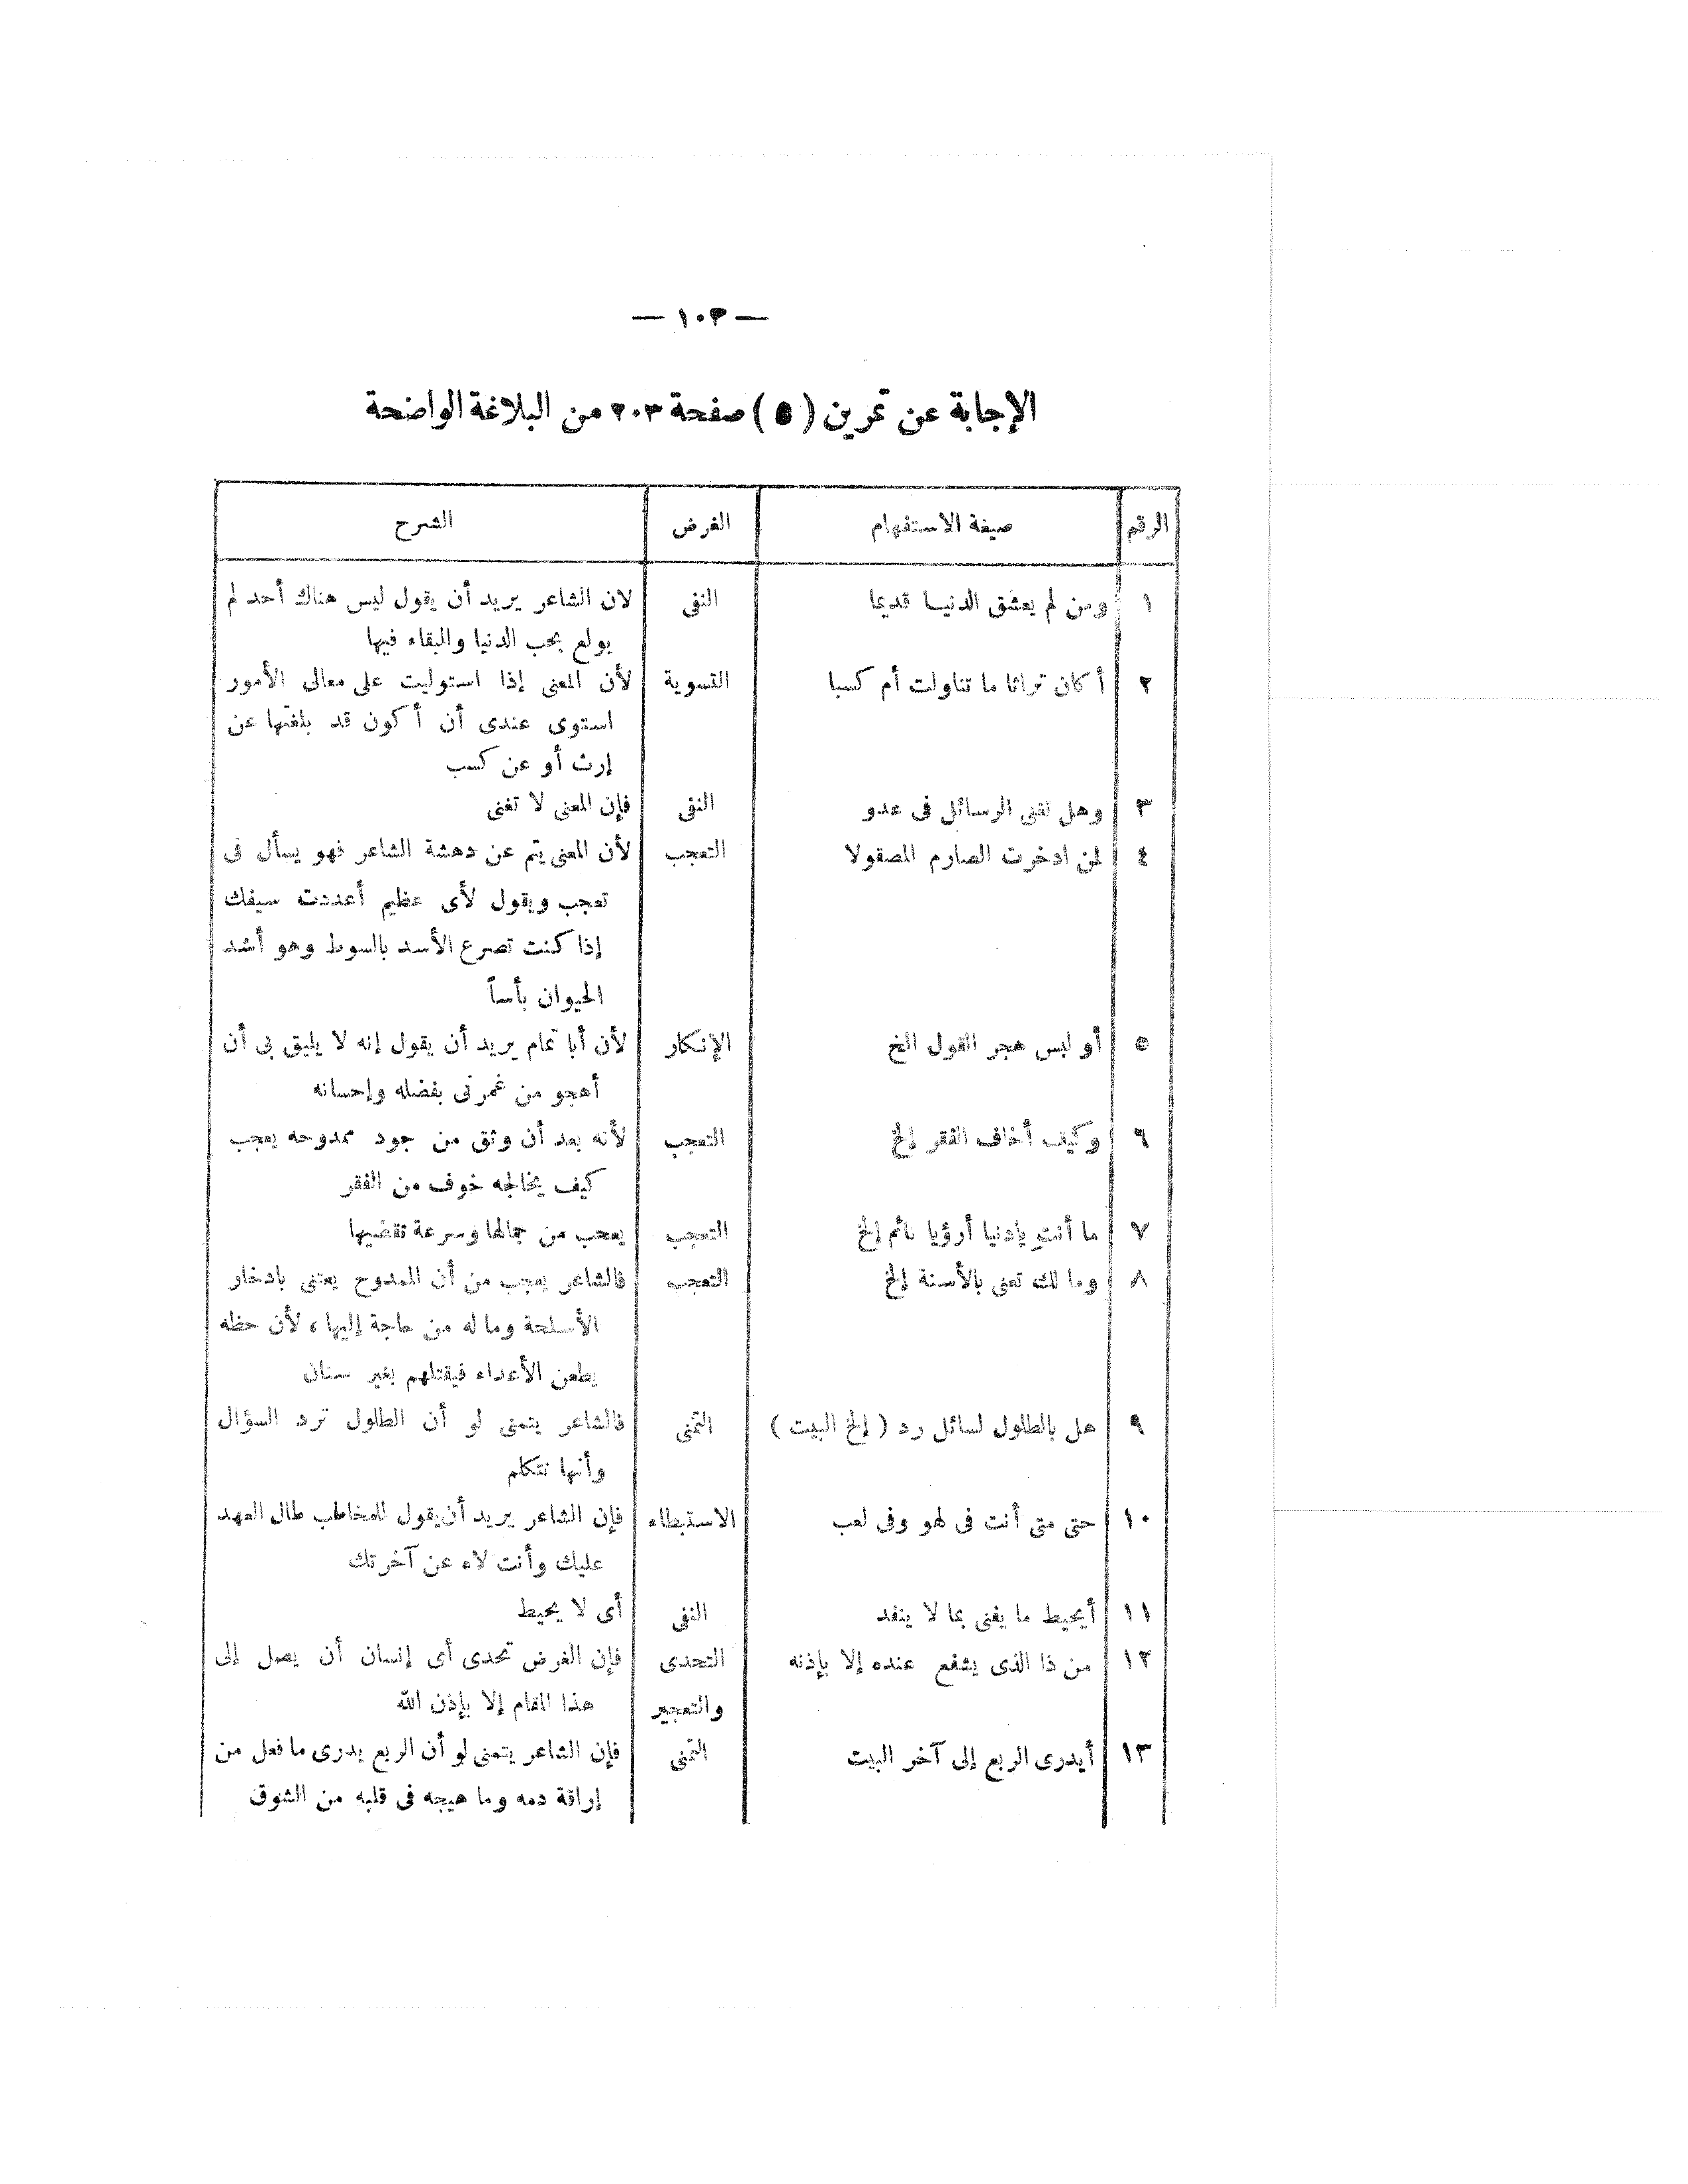 — ١٠٣ —
الإجابة عن تمرين ( ٥ ) صفحة ٢٠٣ من البلاغة الواضحة
الرقم صيغة الاستفهام الغرض الشرح
١ ومن لم يعشق الدنيا قديما النفى لان الشاعر يريد أن يقول ليس هناك أحد لم
يولع بحب الدنيا والبقاء فيها
٢ أكان تراثا ما تناولت أم كسبا التسوية لأن المعنى إذا استوليت على معالى الأمور
استوى عندى أن أكون قد بلغتها عن
إرث أو عن كسب
٣ وهل تغنى الرسائل فى عدو النفى فإن المعنى لا تغنى
٤ لمن ادخرت الصارم المصقولا التعجب لأن المعنى يتم عن دهشة الشاعر فهو يسأل فى
تعجب ويقول لأى عظيم أعددت سيفك
إذا كنت تصرع الأسد بالسوط وهو أشد
الحيوان بأساً
٥ أو لبس هجر القول الخ الإنكار لأن أبا تمام يريد أن يقول إنه لا يليق بى أن
أهجو من غمرنى بفضله وإحسانه
٦ وكيف أخاف الفقر إلخ التعجب لأنه بعد أن وثق من جود ممدوحه يعجب
كيف يخالجه خوف من الفقر
٧ ما أنتِ يادنيا أرؤيا نائم إلخ التعجب يعجب من جمالها وسرعة تقضيها
٨ وما لك تعنى بالأسنة إلخ التعجب فالشاعر يعجب من أن الممدوح يعتنى بادخار
الأسلحة وماله من حاجة إليها ، لأن حظه
يطعن الأعداء فيقتلهم بغير سنان
٩ هل بالطلول لسائل رد ( إلخ البيت ) التمنى فالشاعر يتمنى لو أن الطلول ترد السؤال
وأنها تتكلم
١٠ حتى متى أنت فى لهو وفى لعب الاستبطاء فإن الشاعر يريد أن يقول للمخاطب طال العهد
عليك وأنت لاه عن آخرتك
١١ أيحيط ما يفنى بما لا ينفد النفى أى لا يحيط
١٢ من ذا الذى يشفع عنده إلا بإذنه التحدى فإن الغرض تحدى أى إنسان أن يصل إلى
والتعجيز هذا المقام إلا بإذن الله
١٣ أيدرى الربع إلى آخر البيت التمنى فإن الشاعر يتمنى لو أن الربع يدرى ما فعل من
إراقة دمه وما هيجه فى قلبه من الشوق